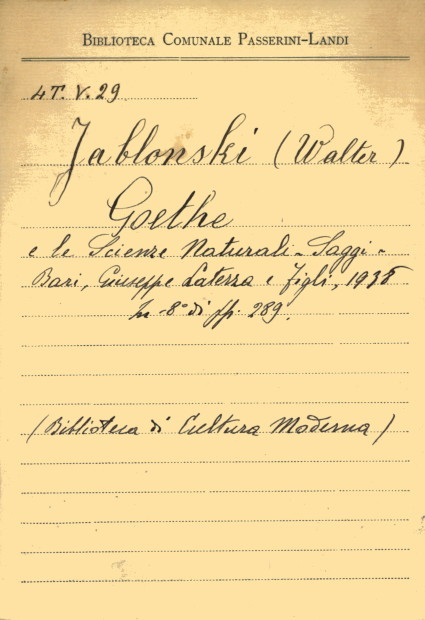 BIBLIOTECA COMUNALE PASSERINI-LANDI
4T. V. 29
Jablonski (Walter)
Goethe
e le Scienze Naturali - Saggi -
Bari, Giuseppe Laterza e figli, 1935
In -8° di pp. 289.
(Biblioteca di Cultura Moderna)